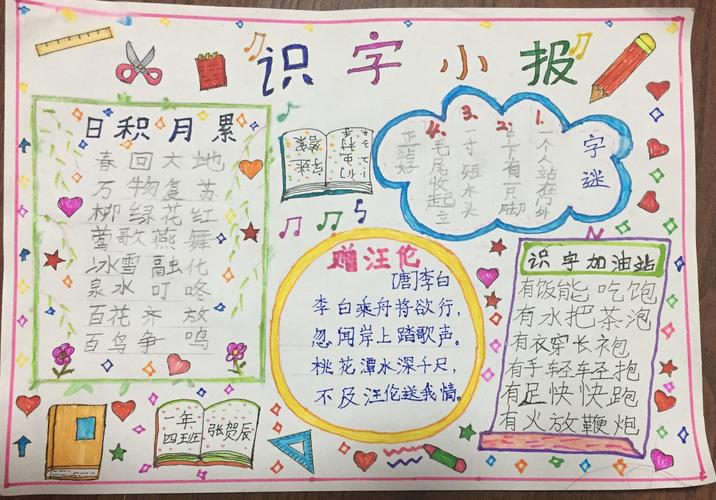 识字小报
日积月累
春回大地
万物复苏
柳绿花红
莺歌燕舞
冰雪融化
泉水叮咚
百花齐放
百鸟争鸣
字迷
答案
1.们
3.村
字迷
1.一个人站在门外
2.下有一只脚
3.一寸短木头
4.毛尾收起立
正站好
赠汪伦
[唐]李白
李白乘舟将欲行,
忽闻岸上踏歌声。
桃花潭水深千尺,
不及汪伦送我情。
识字加油站
有饭能吃饱
有水把茶泡
有衣穿长袍
有手轻轻抱
有足快快跑
有火放鞭炮
一年
四班
张贺辰